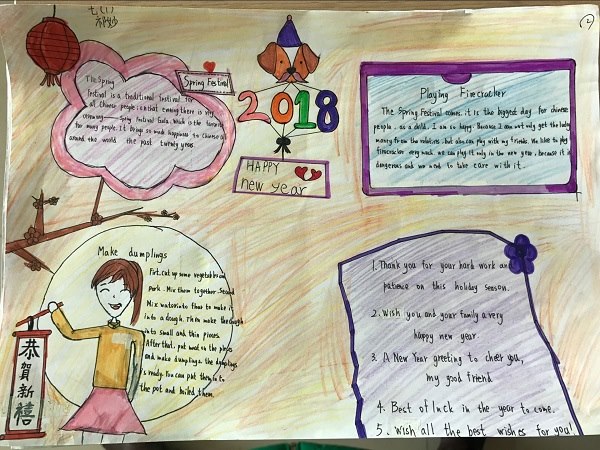 七(1)
祁妙
2
The Spring
festival is a traditional festival for
all Chinese people in that evening there is very
ceremony——Spring Festival Gala, which is the favorite
for many people. It brings so much happiness to Chinese a
around the world the past twenty years.
Spring Festival
2018
HAPPY
new year
Playing Firecracker
The Spring Festival comes, it is the biggest day for chinese
people, as a child, I am so happy. Because I can not only get the lucky
money from the relatives, but also can play with my friends. We like to play
firecracker very much, we can play it only in the new year, because it is
dangerous and we need to take care with it.
Make dumplings
First, cut up some vegetables and
pork. Mix them together. Second
Mix water into flour to make it
into a dough. Then make the dough
into small and thin pieces.
After that, put meat on the pieces
and make dumplings. the dumplings
is ready. You can put them in to
the pot and boild them.
恭賀新禧
1. Thank you for your hard work and
patience on this holiday season.
2. Wish you and your family a very
happy new year
3. A New Year greeting to cheer you,
my good friend
4. Best of luck in the year to come.
5. Wish all the best wishes for you!